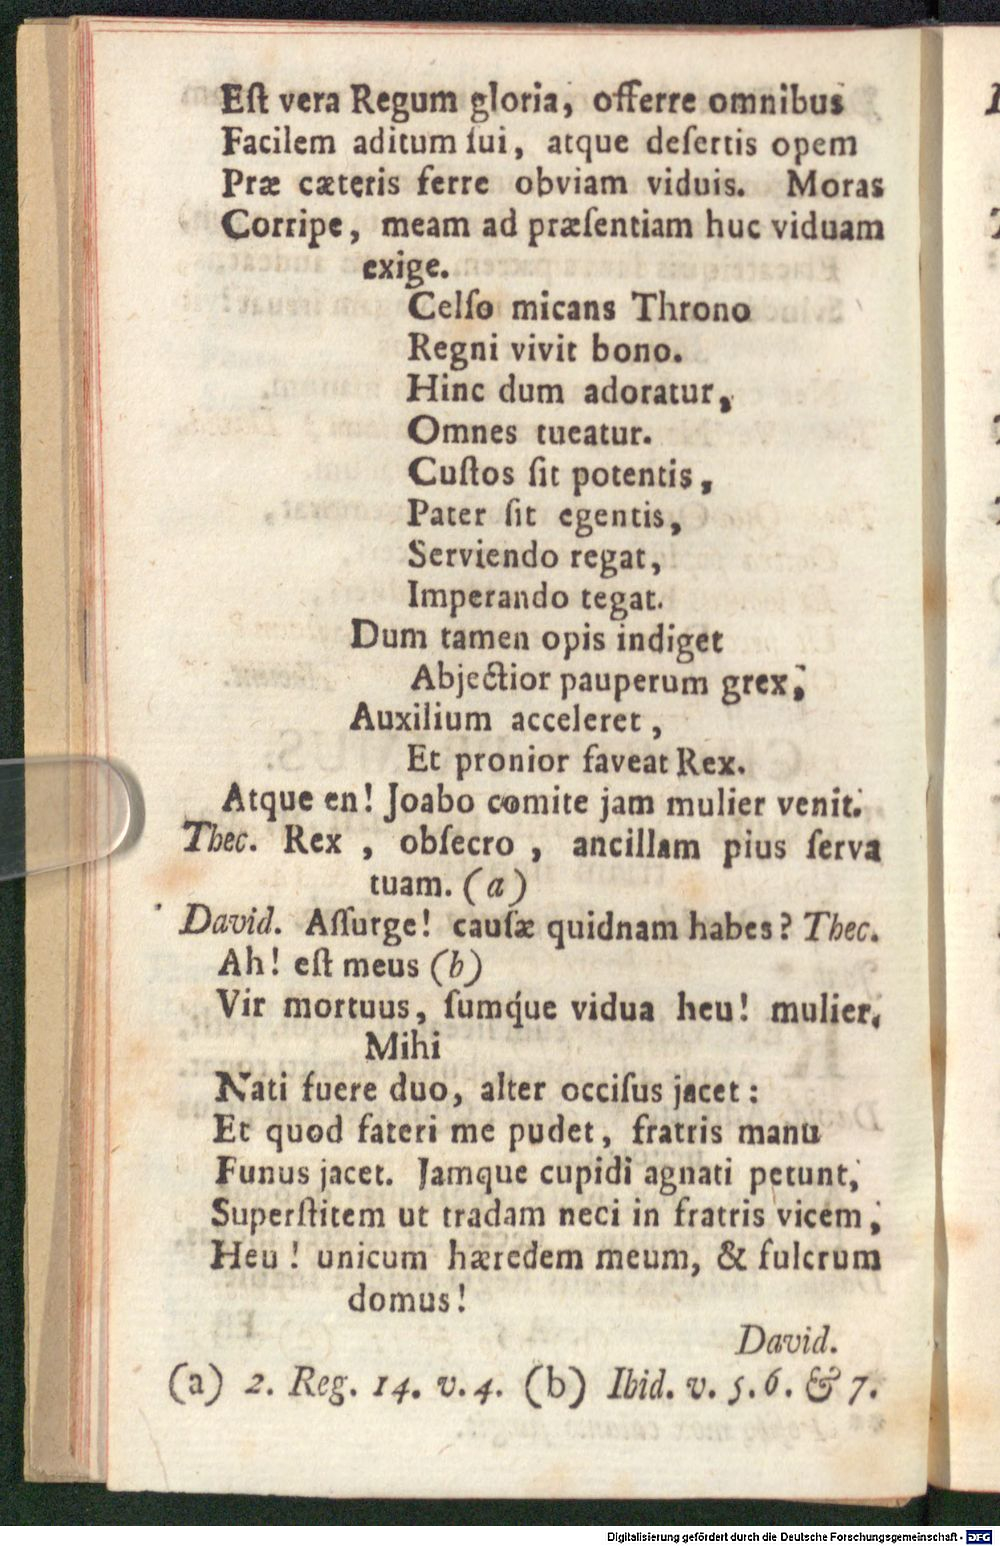 Eſt vera Regum gloria, offerre omnibus
Facilem aditum ſui, atque deſertis opem
Præ cæteris ferre obviam viduis. Moras
Corripe, meam ad præſentiam huc viduam
exige.
Celſo micans Throno
Regni vivit bono.
Hinc dum adoratur,
Omnes tueatur.
Cuſtos ſit potentis,
Pater ſit egentis,
Serviendo regat,
Imperando tegat.
Dum tamen opis indiget
Abjectior pauperum grex;
Auxilium acceleret,
Et pronior faveat Rex.
Atque en! Joabo comite jam mulier venit.
Thec. Rex, obſecro, ancillam pius ſerva
tuam. (a)
David. Aſſurge! cauſæ quidnam habes? Thec.
Ah! eſt meus (b)
Vir mortuus, ſumq́ue vidua heu! mulier.
Mihi
Nati fuere duo, alter occiſus jacet:
Et quod fateri me pudet, fratris manu
Funus jacet. Jamque cupidi agnati petunt,
Superſtitem ut tradam neci in fratris vicem;
Heu! unicum hæredem meum, & fulcrum
domus!
David.
(a) 2. Reg. 14. v. 4. (b) Ibid. v. 5. 6. & 7.
Digitalisierung gefördert durch die Deutsche Forschungsgemeinschaft - DFG